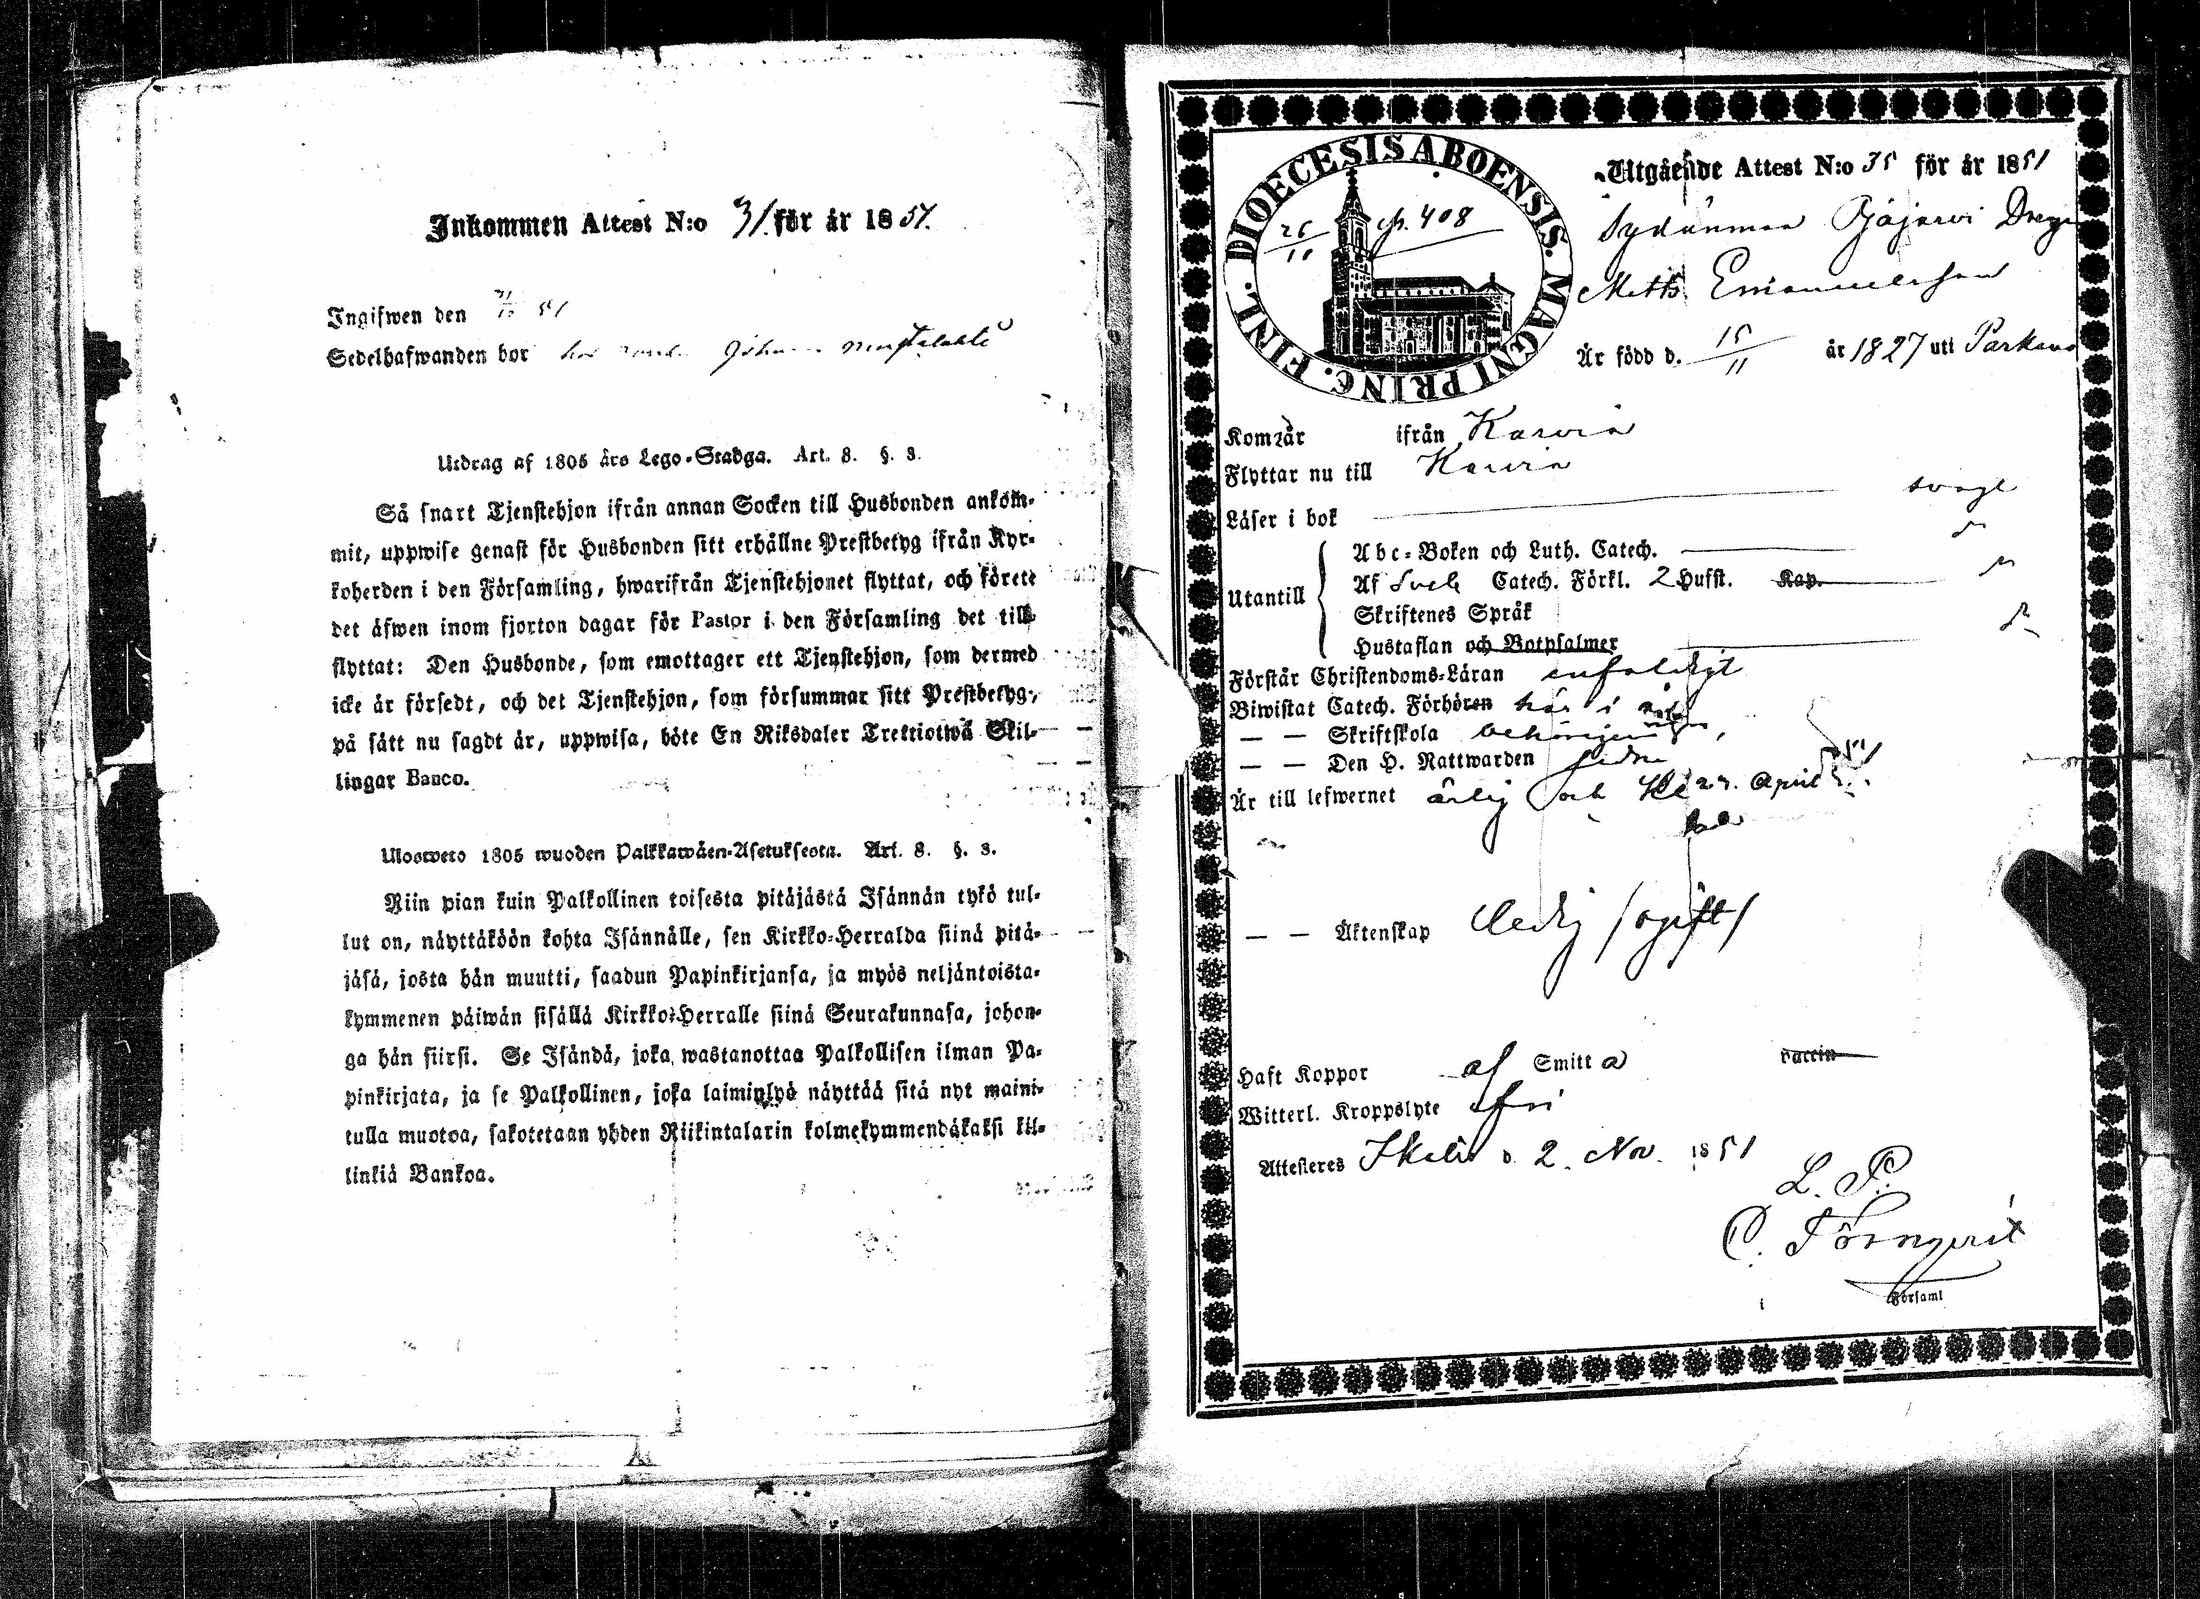 Inkommen Attest N:o 31. för år 1851.
Ingifwen den 51
Sedelhafwanden bor hos Johan
Utdrag af 1805 års Lego-Stadga. Art. 8. §. 3.
Så snart Tjenstehjon ifrån annan Socken till Husbonden ankom-
mit, uppwise genast för Husbonden sitt erhållne Prestbetyg ifrån Kyr-
koherden i den Församling, hwarifrån Tjenstehjonet flyttat, och förete
det äfwen inom fjorton dagar för Pastor i den Församling det till
flyttat: Den Husbonde, som emottager ett Tjenstehjon, som dermed
icke är försedt, och det Tjenstehjon, som försummar sitt Prestbetyg,
på sätt nu sagdt är, uppwisa, böte En Riksdaler Trettiotwå Skil-
lingar Banco.
Ulosweto 1805 wuoden Palkkawäen-Asetuksesta. Art. 8. §. 3.
Niin pian kuin Palkollinen toisesta pitäjästä Isännän tykö tul-
lut on, näyttäköön kohta Isännälle, sen Kirkko-Herralda siinä pitä-
jäsä, josta hän muutti, saadun Papinkirjansa, ja myös neljäntoista-
kymmenen päiwän sisällä Kirkko-Herralle siinä Seurakunnasa, johon-
ga hän siirsi. Se Isändä, joka wastanottaa Palkollisen ilman Pa-
pinkirjata, ja se Palkollinen, joka laimilyö näyttää sitä nyt maini-
tulla muotoa, sakotetaan yhden Riikintalarin kolmekymmendäkaksi kil-
linkiä Bankoa.
DIOECESIS ABOENSIS. MAGNI PRINC. FINL.
26/10 p. 408
Utgående Attest N:o 35 för år 1851
Sydänmaa Dreng
Matts Emanuelsson
Är född d. 15/11 år 1827 uti Parkano
Kom år ifrån Karvia
Flyttar nu till Karvia
Läser i bok svagt
Utantill
Abc-Boken och Luth. Catech.
Af Sveb Catech. Förkl. 2 Hufst. Kap.
Skriftenes Språk
Hustaflan och Botpsalmer
Förstår Christendoms-Läran enfaldigt
Biwistat Catech. Förhören här i
— — Skriftskola behörigen
— — Den H. Nattwarden sedn April
Är till lefwernet ärlig och
— — Äktenskap ledig /ogift/
Haft Koppor af Smitta vaccin
Witterl. Kroppslyte fri
Attesteres Ikalis d. 2. Nov. 1851
L. P.
C. Törnqvist
Församl